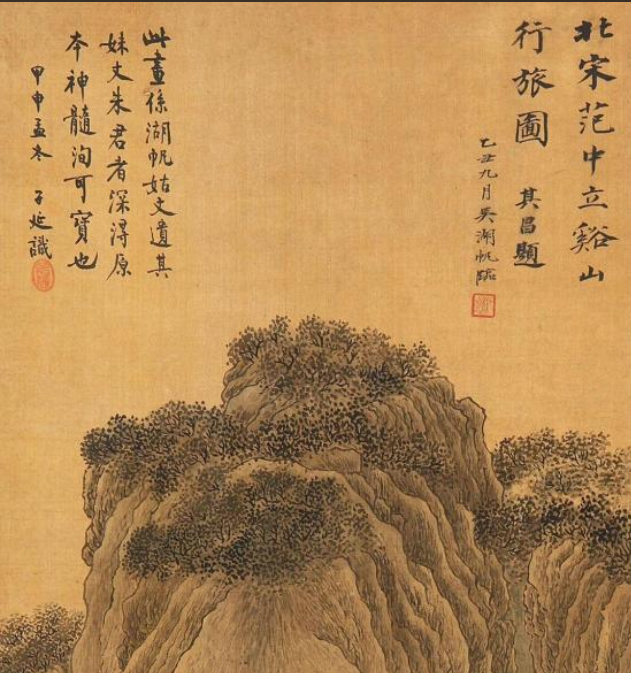 北宋范中立谿山
行旅圖 其昌題
乙丑九月吳湖帆臨
此畫係湖帆姑丈遺其
妹丈朱君者深得原
本神髓洵可寶也
甲申孟冬 子延識